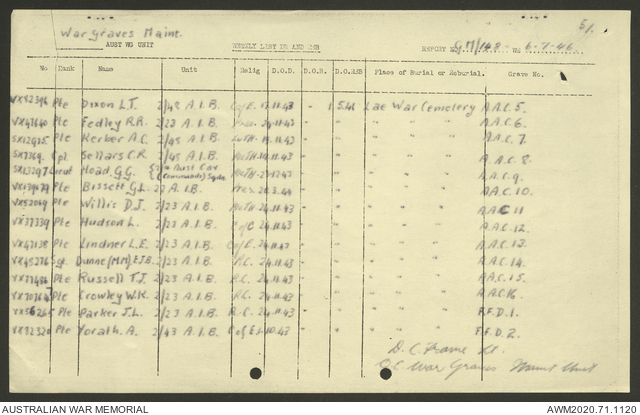 51.
War Graves Maint.
AUST WG UNIT WEEKLY LIST IR AND REB REPORT No GM/148 6-7-46
No Rank Name Unit Relig D.O.D. D.O.B. D.O.REB Place of Burial or Reburial. Grave No.
VX52396 Pte Dixon L.T. 2/48 A.I.B. C of E. 17.11.43 - 1 5.46 Lae War Cemetery A.A.C. 5.
Pte Fedley R.R. 2/23 A.I.B. " " " A.A.C. 6.
Pte Kerber A.C. 2/48 A.I.B. Luth. " " " A.A.C. 7.
Cpl Sellars C.R. 2/48 A.I.B. Meth. " " " A.A.C. 8.
SX13297 Lieut Hoad G.G. Aust Cav (Commando) Sqdn Meth. " " " A.A.C. 9.
Pte Bissett G.L. A.I.B. Pres. " " " A.A.C. 10.
Pte Willis D.J. 2/23 A.I.B. Meth 24.11.43 " " " A.A.C 11
VX37339 Pte Hudson L. 2/23 A.I.B. C of E 24.11.43 " " " A.A.C. 12.
VX47138 Pte Lindner L.E. 2/23 A.I.B. C of E. 24.11.43 " " " A.A.C. 13.
VX45276 Sgt. Dunne (M.M) E.J.B. 2/23 A.I.B. R.C. 24.11.43 " " " A.A.C. 14.
Pte Russell T.J. 2/23 A.I.B. R.C. 24.11.43 " " " A.A.C. 15.
Pte Crowley W.K. 2/23 A.I.B. R.C. 24.11.43 " " " A.A.C. 16.
Pte Parker J.L. 2/23 A.I.B. R.C. 24.11.43 " " " F.F.D. 1.
VX92320 Pte Yorath. A. 2/43 A.I.B. C of E 1.10.43 " " " F.F.D. 2.
D.C. Frame Lt.
O.C War Graves Maint Unit
AUSTRALIAN WAR MEMORIAL AWM2020.71.1120